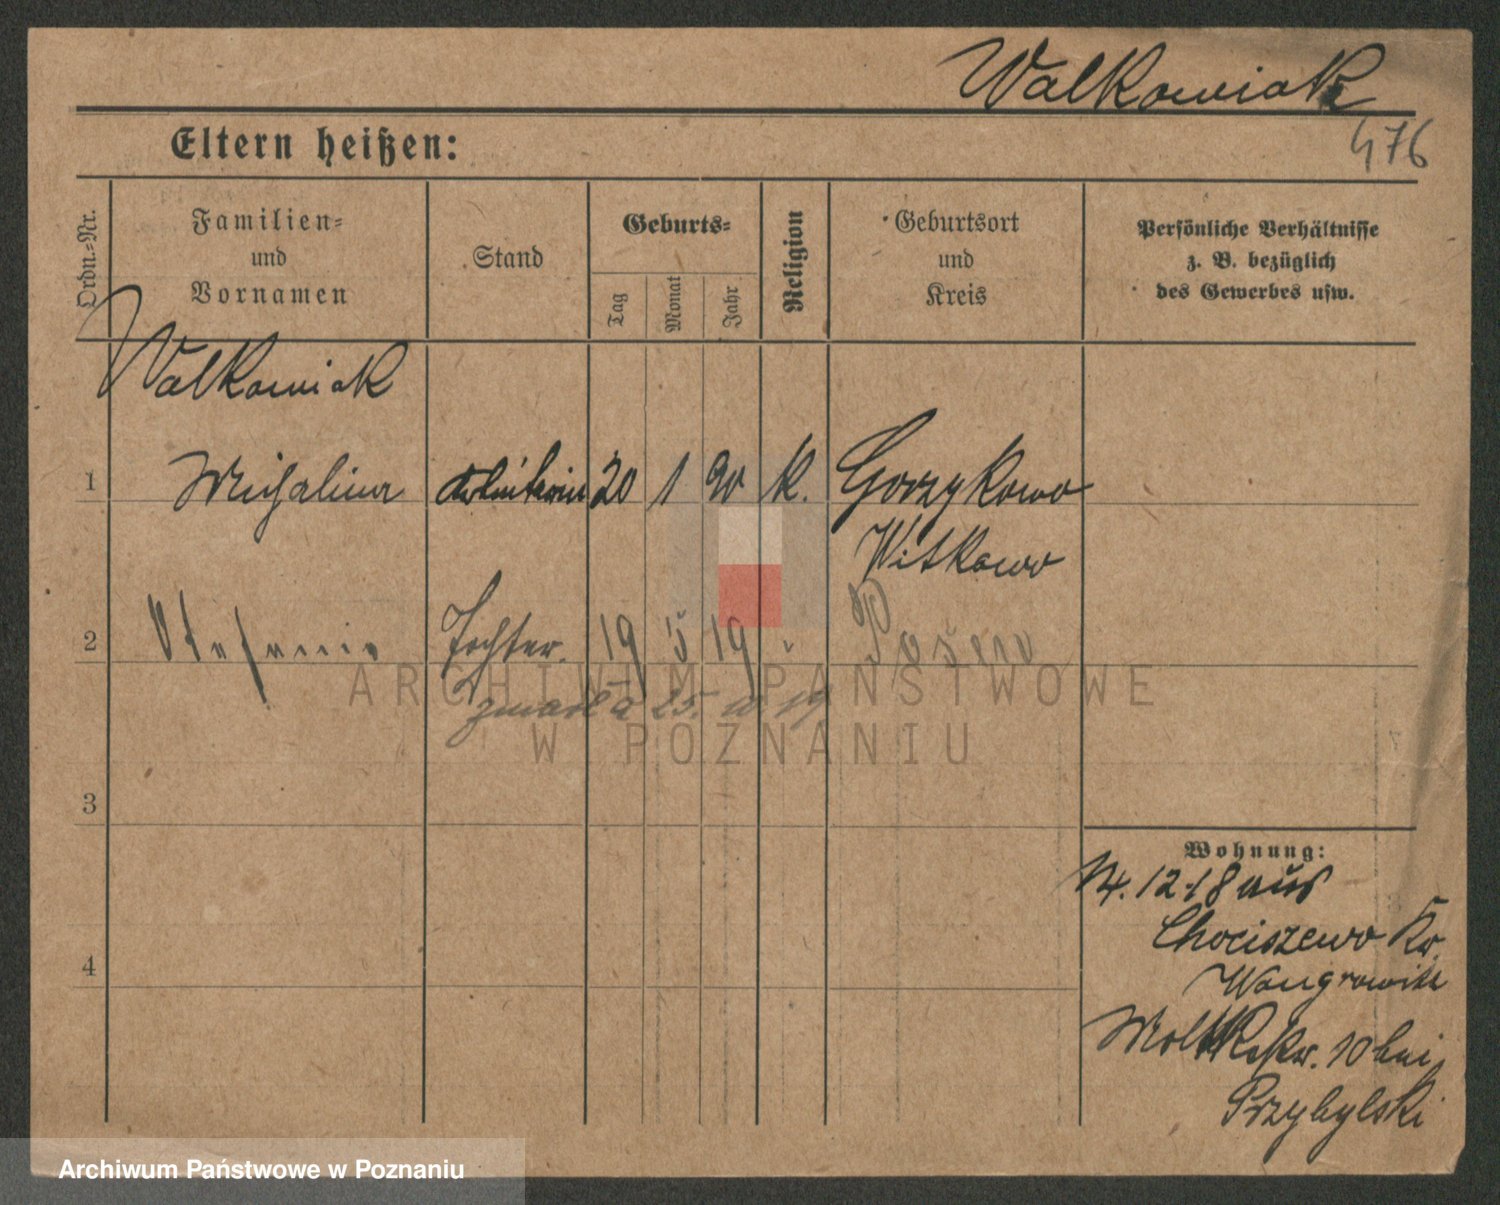 Walkowiak
476
Eltern heißen:
Ordn.-Nr.
Familien-
und
Vornamen
Stand
Geburts-
Tag
Monat
Jahr
Religion
Geburtsort
und
Kreis
Persönliche Verhältnisse
z. B. bezüglich
des Gewerbes usw.
Walkowiak
1 Michalina Arbeiterin 20 1 90 K. Gorzykowo
Witkowo
2 Stefania Tochter. 19 5 19 " Posen
zmarła 25. 10 19
3
4
Wohnung:
14. 12 18 aus
Chociszewo Kr.
Wongrowitz
Moltkestr. 10 bei
Przybylski
ARCHIWUM PAŃSTWOWE
W POZNANIU
Archiwum Państwowe w Poznaniu